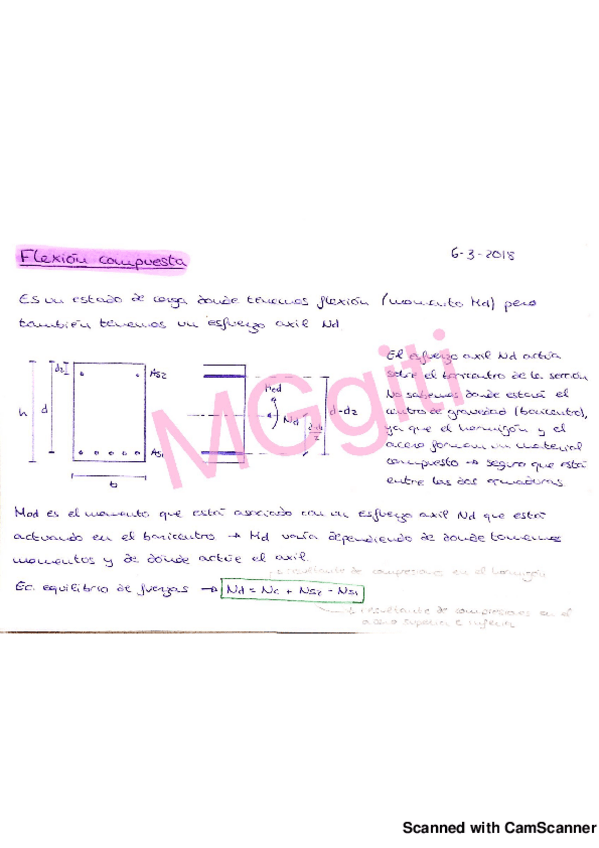 Flexión compuesta
6-3-2018
Es un estado de carga donde tenemos flexión (momento Md) pero
también tenemos un esfuerzo axil Nd
d2
As2
h
d
As1
b
Mod
Nd
d-d2
2
d-d2
El esfuerzo axil Nd actúa
sobre el baricentro de la sección
No sabemos donde estará el
centro de gravedad (baricentro),
ya que el hormigón y el
acero forman un material
compuesto → seguro que está
entre las dos armaduras
MGgiti
Mod es el momento que está asociado con un esfuerzo axil Nd que está
actuando en el baricentro → Md varía dependiendo de donde tomemos
momentos y de donde actúe el axil
resultante de compresiones en el hormigón
Ec. equilibrio de fuerzas → Nd = Nc + Ns2 - Ns1
resultante de compresiones en el
acero superior e inferior
Scanned with CamScanner